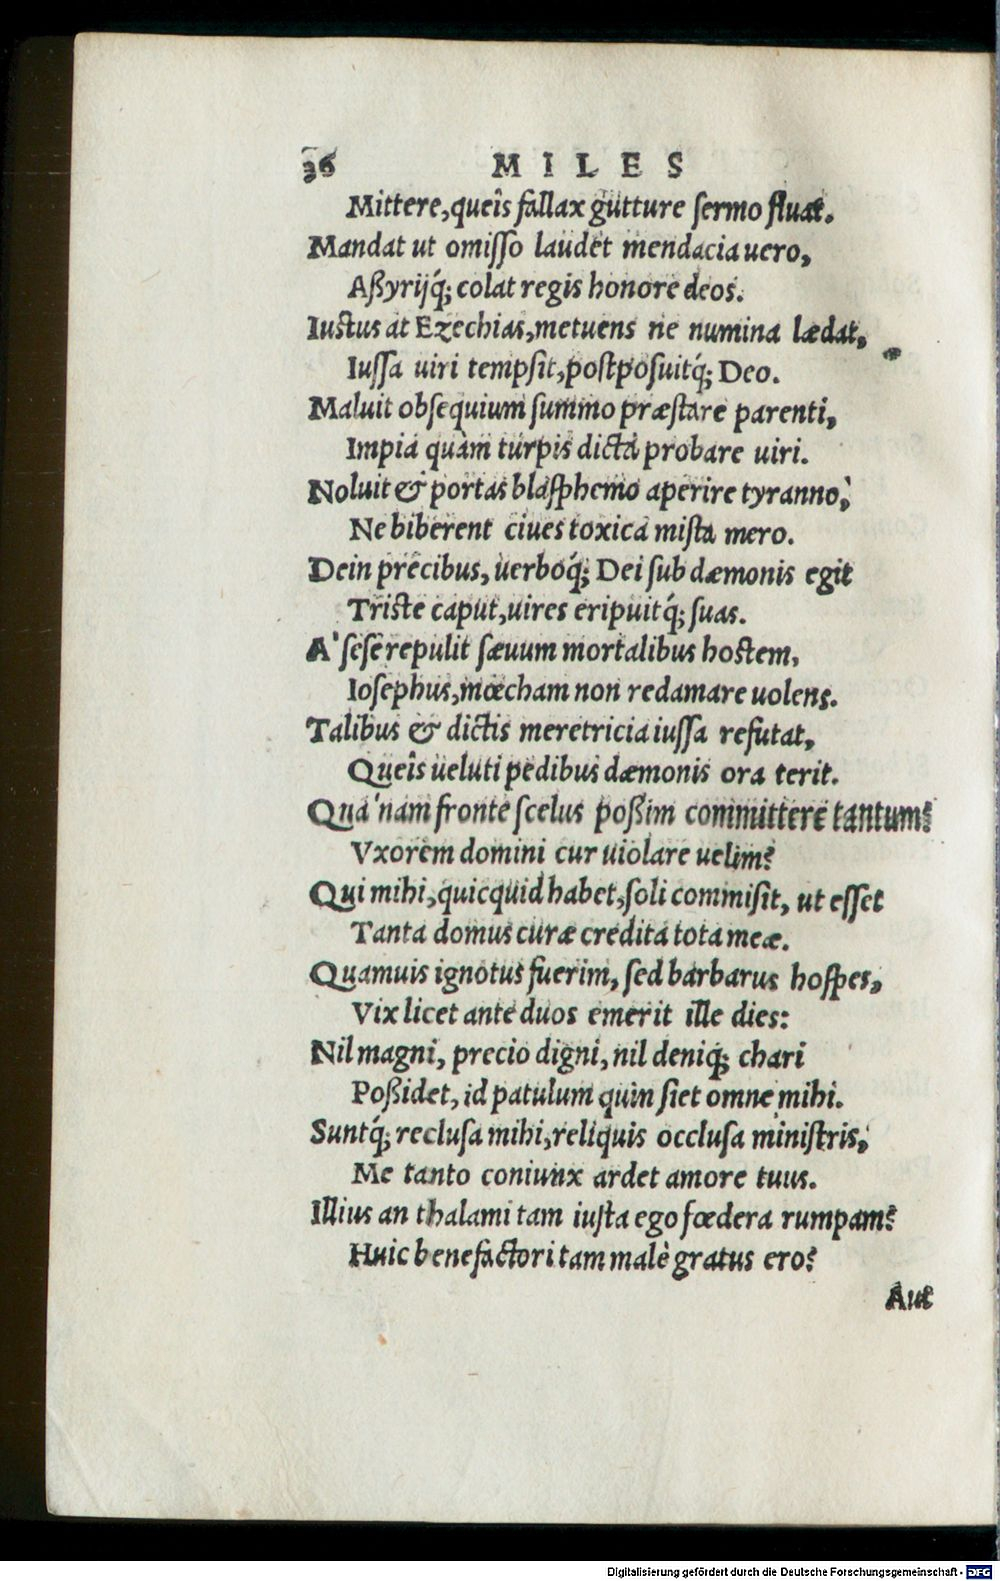 36 MILES
Mittere, queîs fallax gutture ſermo fluat.
Mandat ut omiſſo laudet mendacia uero,
Aßyrijq́; colat regis honore deos.
Iustus at Ezechias, metuens ne numina lædat,
Iuſſa uiri tempſit, poſtpoſuitq́; Deo.
Maluit obſequium ſummo præſtare parenti,
Impia quàm turpis dicta probare uiri.
Noluit & portas blaſphemo aperire tyranno,
Ne biberent ciues toxica miſta mero.
Dein precibus, uerboq́; Dei ſub dæmonis egit
Triſte caput, uires eripuitq́; ſuas.
A' ſeſe repulit ſæuum mortalibus hoſtem,
Ioſephus, mœcham non redamare uolens.
Talibus & dictis meretricia iuſſa refutat,
Queîs ueluti pedibus dæmonis ora terit.
Qua' nam fronte ſcelus poßim committere tantum?
Vxorem domini cur uiolare uelim?
Qui mihi, quicquid habet, ſoli commiſit, ut eſſet
Tanta domus curæ credita tota meæ.
Quamuis ignotus fuerim, ſed barbarus hoſpes,
Vix licet ante duos emerit ille dies:
Nil magni, precio digni, nil deniq; chari
Poßidet, id patulum quin ſiet omne mihi.
Suntq́; recluſa mihi, reliquis occluſa miniſtris,
Me tanto coniunx ardet amore tuus.
Illius an thalami tam iuſta ego fœdera rumpam?
Huic benefactori tam malè gratus ero?
Aut
Digitalisierung gefördert durch die Deutsche Forschungsgemeinschaft - DFG